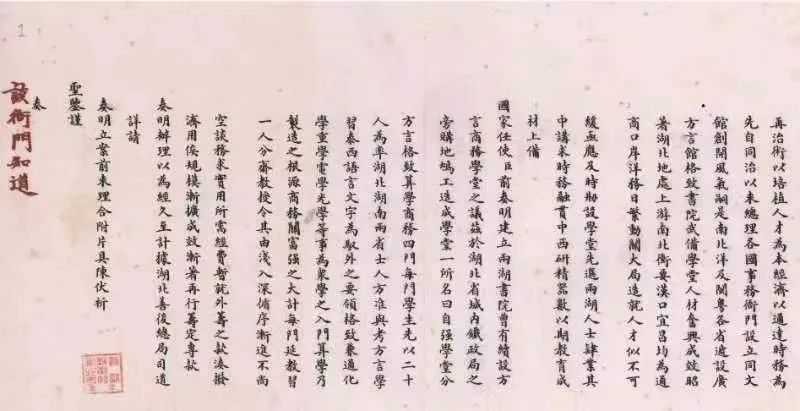 再治術以培植人才為本經濟以通達時務為
先自同治以來總理各國事務衙門設立同文
館創開風氣嗣是南北洋及閩粵各省遞設廣
方言館格致書院武備學堂人材奮興成效昭
著湖北地處上游南北衝要漢口宜昌均為通
商口岸洋務日繁動關大局造就人才似不可
緩亟應及時舠設學堂先選兩湖人士肄業其
中講求時務融貫中西研精器數以期教育成
材上備
國家任使臣前奏明建立兩湖書院曾有續設方
言商務學堂之議茲於湖北省城內鐵政局之
旁購地鳩工造成學堂一所名曰自強學堂分
方言格致算學商務四門每門學生先以二十
人為率湖北湖南兩省士人方准與考方言學
習泰西語言文字為馭外之要領格致兼通化
學重學電學光學等事為眾學之入門算學乃
製造之根源商務關富強之大計每門延教習
一人分齋教授令其由淺入深循序漸進不尚
空談務求實用所需經費暫就外籌之款湊撥
濟用俟規模漸擴成效漸著再行籌定專款
奏明辦理以為經久至計據湖北善後總局司道
詳請
奏明立案前來理合附片具陳伏祈
聖鑒謹
奏
該衙門知道
1